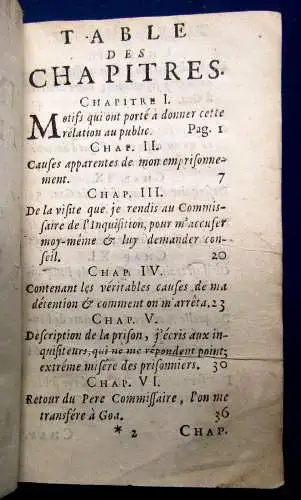 TABLE
DES
CHAPITRES.
CHAPITRE I.
Motifs qui ont porté à donner cette
rélation au public. Pag. 1
CHAP. II.
Causes apparentes de mon emprisonne-
ment. 7
CHAP. III.
De la visite que je rendis au Commis-
saire de l'Inquisition, pour m'accuser
moy-même & luy demander con-
seil. 20
CHAP. IV.
Contenant les véritables causes de ma
détention & comment on m'arrêta. 23
CHAP. V.
Description de la prison, j'écris aux in-
quisiteurs, qui ne me répondent point;
extréme misére des prisonniers. 30
CHAP. VI.
Retour du Pere Commissaire, l'on me
transfére à Goa. 36
* 2 CHAP.